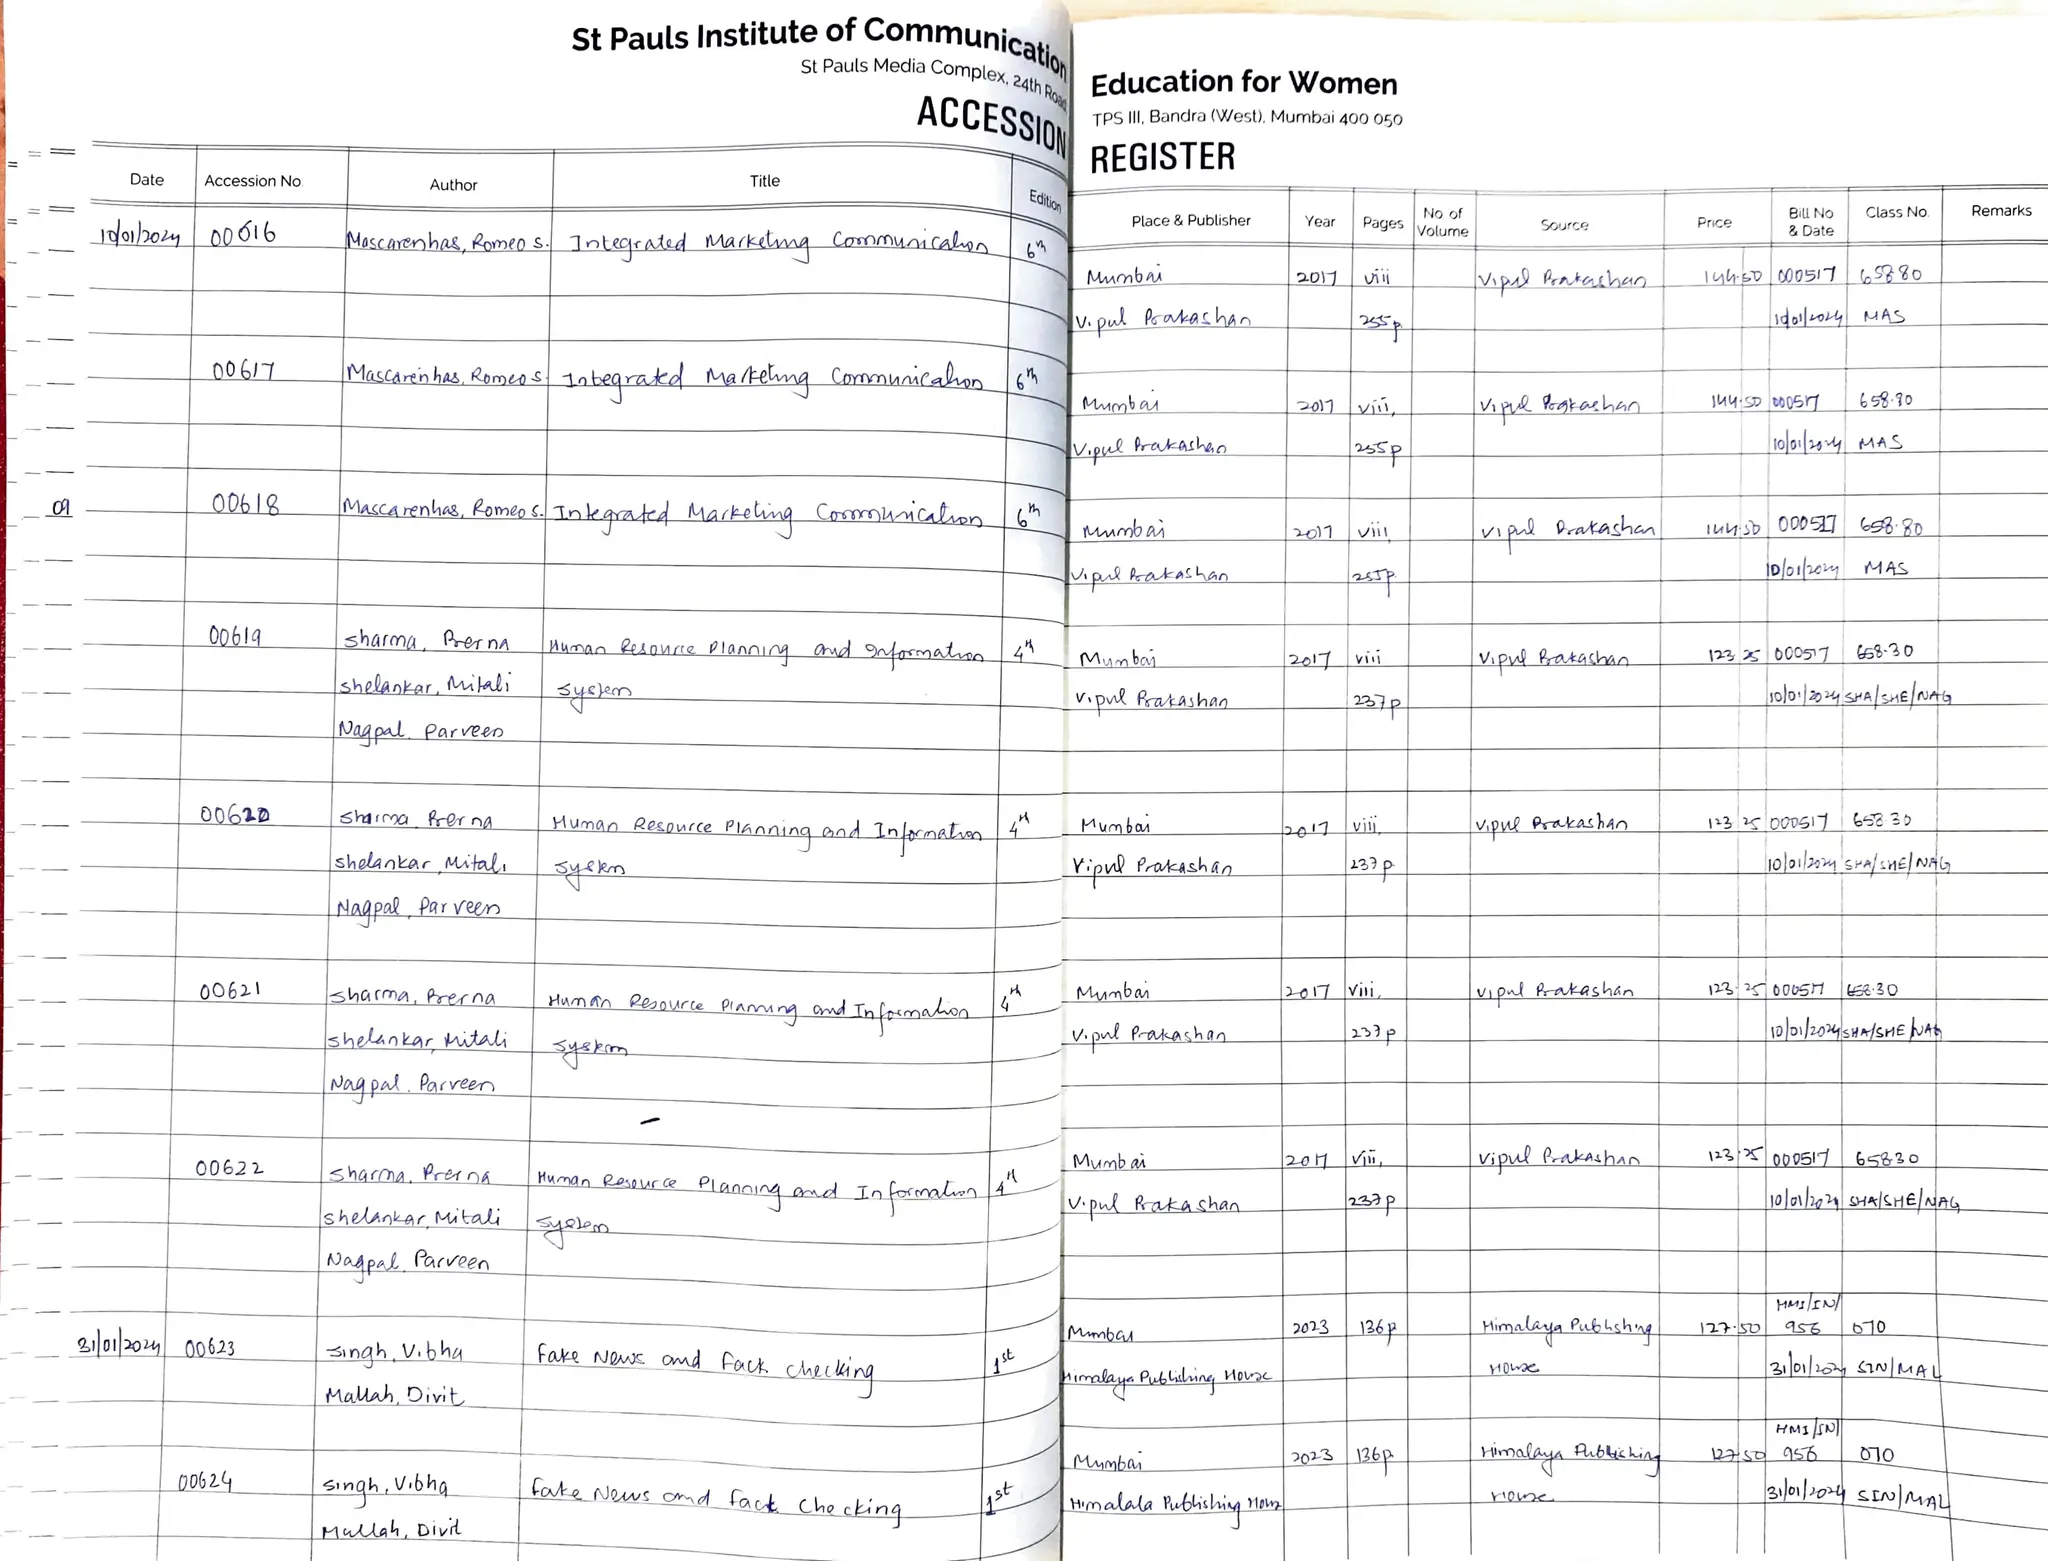 St Pauls Institute of Communication Education for Women
St Pauls Media Complex, 24th Road, TPS III, Bandra (West), Mumbai 400 050
ACCESSION REGISTER
Date Accession No. Author Title Edition Place & Publisher Year Pages No. of Volume Source Price Bill No & Date Class No. Remarks
10/01/2024 00616 Mascarenhas, Romeo S. Integrated Marketing Communication 6th Mumbai 2017 viii Vipul Prakashan 144.50 000517 658.80
Vipul Prakashan 255p 10/01/2024 MAS
00617 Mascarenhas, Romeo S. Integrated Marketing Communication 6th Mumbai 2017 viii, Vipul Prakashan 144.50 000517 658.80
Vipul Prakashan 255p 10/01/2024 MAS
09 00618 Mascarenhas, Romeo S. Integrated Marketing Communication 6th Mumbai 2017 viii, Vipul Prakashan 144.50 000517 658.80
Vipul Prakashan 255p 10/01/2024 MAS
00619 Sharma, Prerna Human Resource Planning and Information 4th Mumbai 2017 viii Vipul Prakashan 123.25 000517 658.30
Shelankar, Mitali System Vipul Prakashan 237p 10/01/2024 SHA/SHE/NAG
Nagpal, Parveen
00620 Sharma, Prerna Human Resource Planning and Information 4th Mumbai 2017 viii, Vipul Prakashan 123.25 000517 658.30
Shelankar, Mitali System Vipul Prakashan 237p 10/01/2024 SHA/SHE/NAG
Nagpal, Parveen
00621 Sharma, Prerna Human Resource Planning and Information 4th Mumbai 2017 viii, Vipul Prakashan 123.25 000517 658.30
Shelankar, Mitali System Vipul Prakashan 237p 10/01/2024 SHA/SHE/NAG
Nagpal, Parveen
00622 Sharma, Prerna Human Resource Planning and Information 4th Mumbai 2017 viii, Vipul Prakashan 123.25 000517 658.30
Shelankar, Mitali System Vipul Prakashan 237p 10/01/2024 SHA/SHE/NAG
Nagpal, Parveen
HMI/IN/
31/01/2024 00623 Singh, Vibha Fake News and Fact Checking 1st Mumbai 2023 136p Himalaya Publishing 127.50 956 070
Mallah, Divit Himalaya Publishing House House 31/01/2024 SIN/MAL
HMI/IN/
00624 Singh, Vibha Fake News and Fact Checking 1st Mumbai 2023 136p Himalaya Publishing 127.50 956 070
Mallah, Divit Himalala Publishing House House 31/01/2024 SIN/MAL